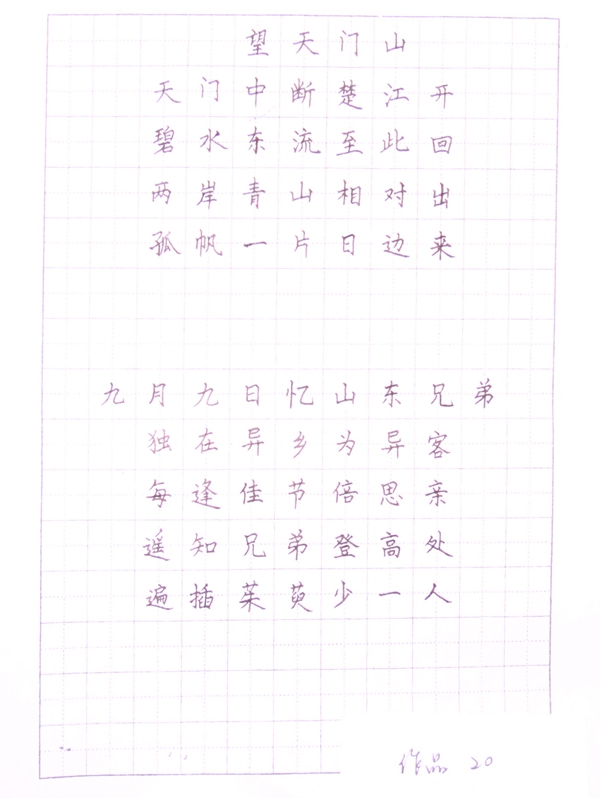 望天门山
天门中断楚江开
碧水东流至此回
两岸青山相对出
孤帆一片日边来
九月九日忆山东兄弟
独在异乡为异客
每逢佳节倍思亲
遥知兄弟登高处
遍插茱萸少一人
作品 20